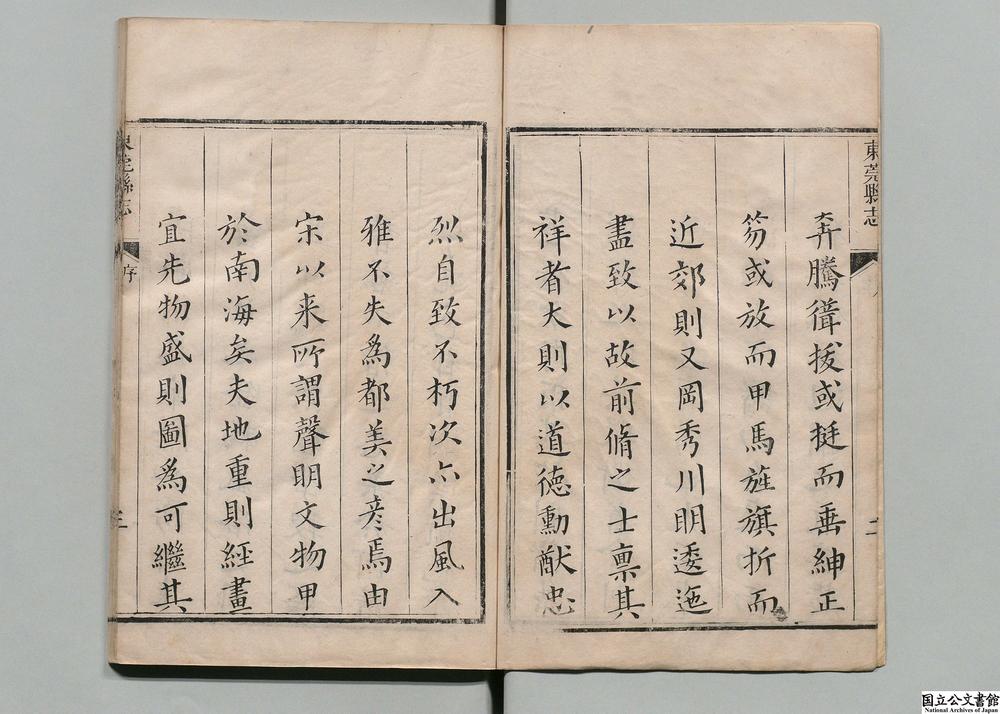 東莞縣志
二
奔騰㠥拔或挺而垂紳正
笏或放而甲馬旌旗折而
近郊則又岡秀川明逶迤
盡致以故前脩之士禀其
祥者大則以道德勳猷忠
烈自致不朽次亦出風入
雅不失為都美之彦焉由
宋以来所謂聲明文物甲
於南海矣夫地重則經畫
宜先物盛則圖為可繼其
東莞縣志
序
三
国立公文書館
National Archives of Japan